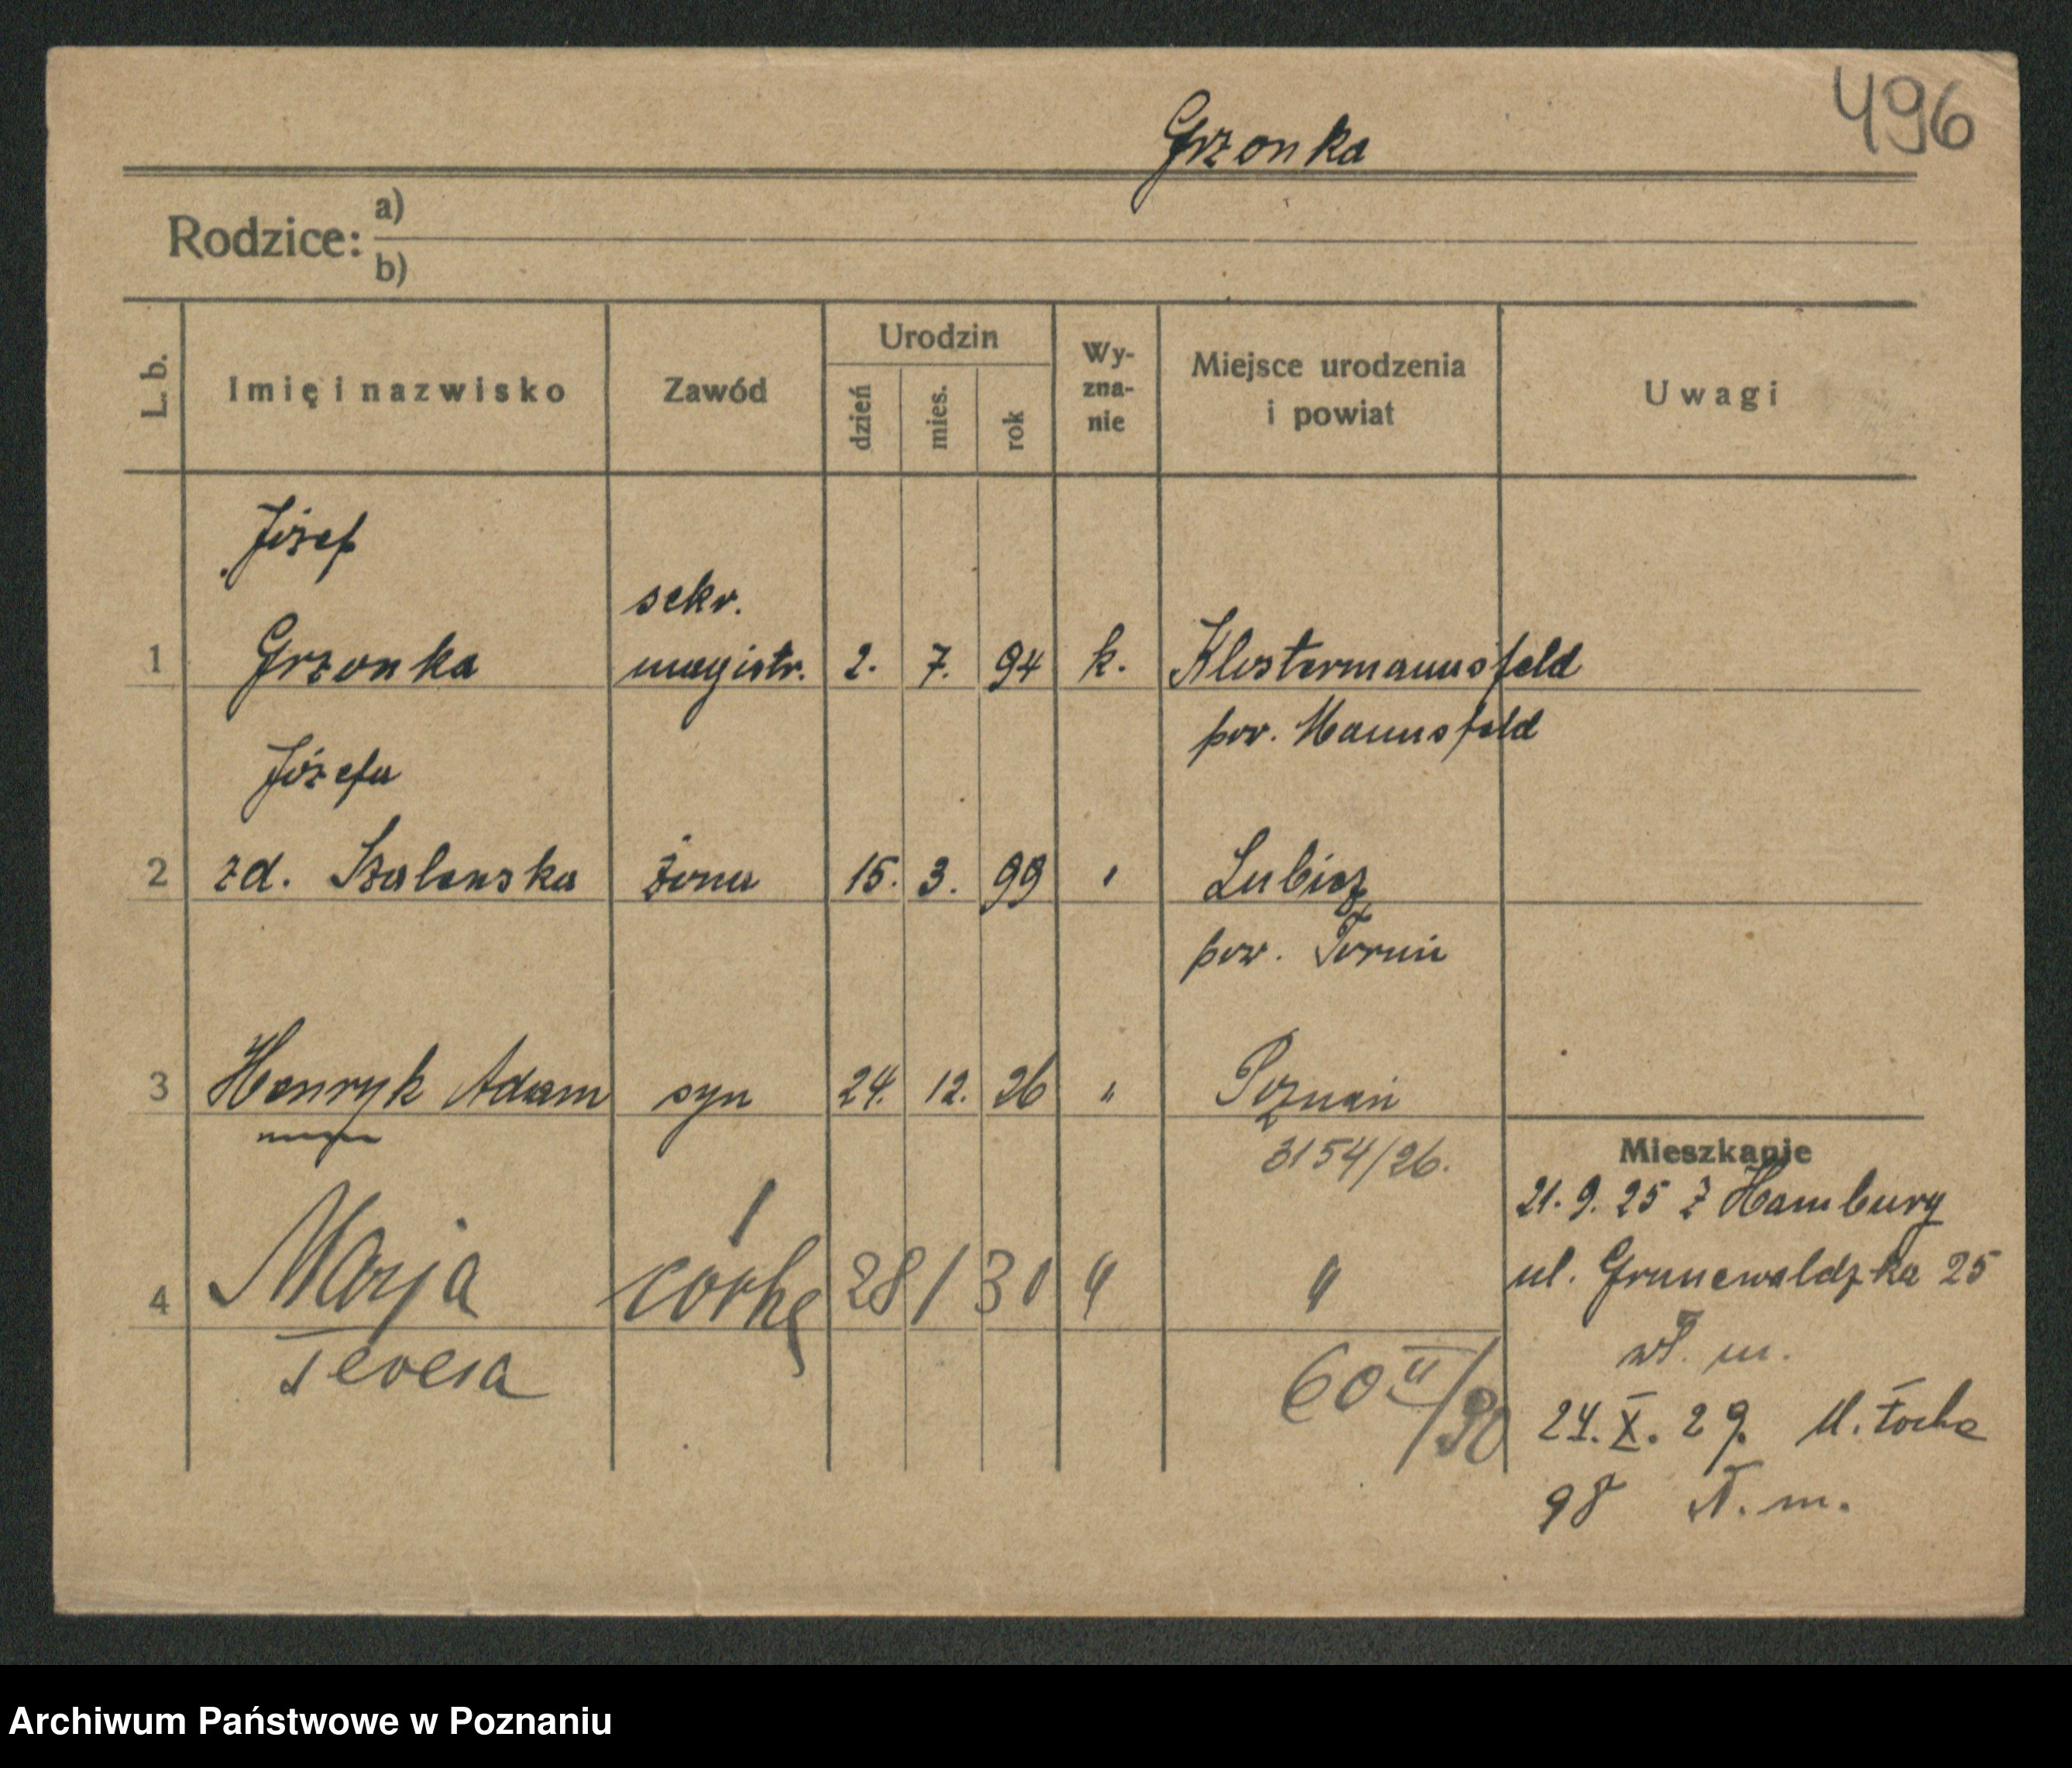 496
Grzonka
Rodzice: a)
b)
L. b. Imię i nazwisko Zawód Urodzin Wy-zna-nie Miejsce urodzenia i powiat Uwagi
dzień mies. rok
Józef
sekr.
1 Grzonka magistr. 2. 7. 94 k. Klostermannsfeld
pow. Mannsfeld
Józefa
2 zd. Szalenska żona 15. 3. 99 " Lubicz
pow. Toruń
3 Henryk Adam syn 24. 12. 26 " Poznań
3154/26.
Mieszkanie
21. 9. 25 z Hamburg
4 Marja córka 28/1 30 " "
ul. Grunewaldzka 25
Teresa
60 II/30
24. X. 29.
98
Archiwum Państwowe w Poznaniu